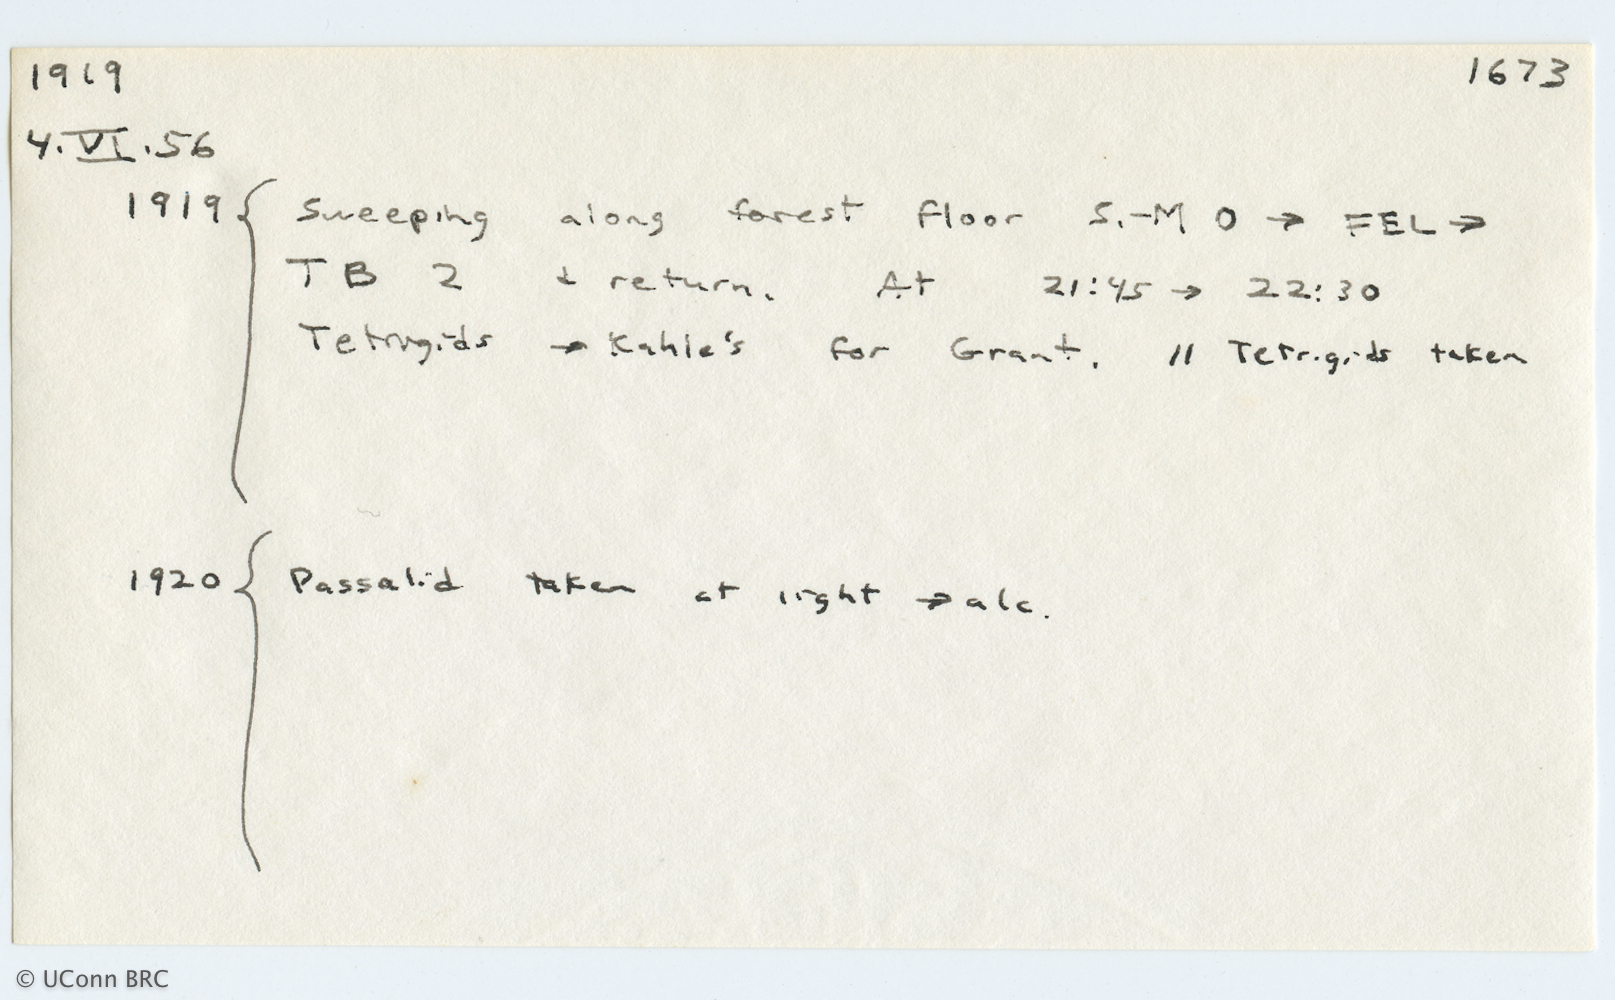 1919 1673
4.VI.56
1919 { Sweeping along forest floor S.-M 0 → FEL →
TB 2 + return. At 21:45 → 22:30
Tetrigids → Kahle's for Grant. 11 Tetrigids taken
1920 { Passalid taken at light → alc.
© UConn BRC